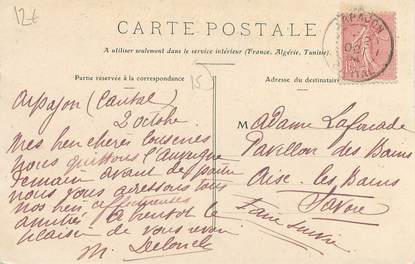 12€
CARTE POSTALE
A utiliser seulement dans le service intérieur (France, Algérie, Tunisie).
Partie réservée à la correspondance
15
Adresse du destinataire
ARPAJON
Arpajon (Cantal)
2 octobre
Mes bien chères cousines
nous quittons l'Auvergne
demain avant de partir
nous vous adressons tous
nos bien affectueuses
amitiés à bientôt le
plaisir de vous revoir
M. Deloncle
Madame Lafarcade
Pavillon des Bains
Aix-les-Bains
Savoie
Faire suivre